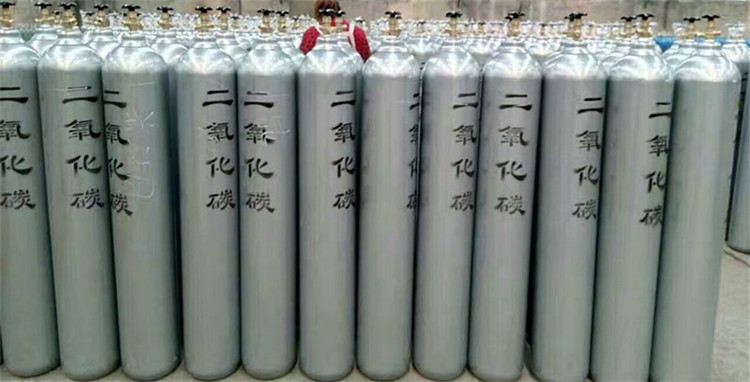 二氧化碳
二氧化碳
二氧化碳
二氧化碳
二氧化碳
二氧化碳
二氧化碳
二氧化碳
二氧化碳
二氧化碳
二氧化碳